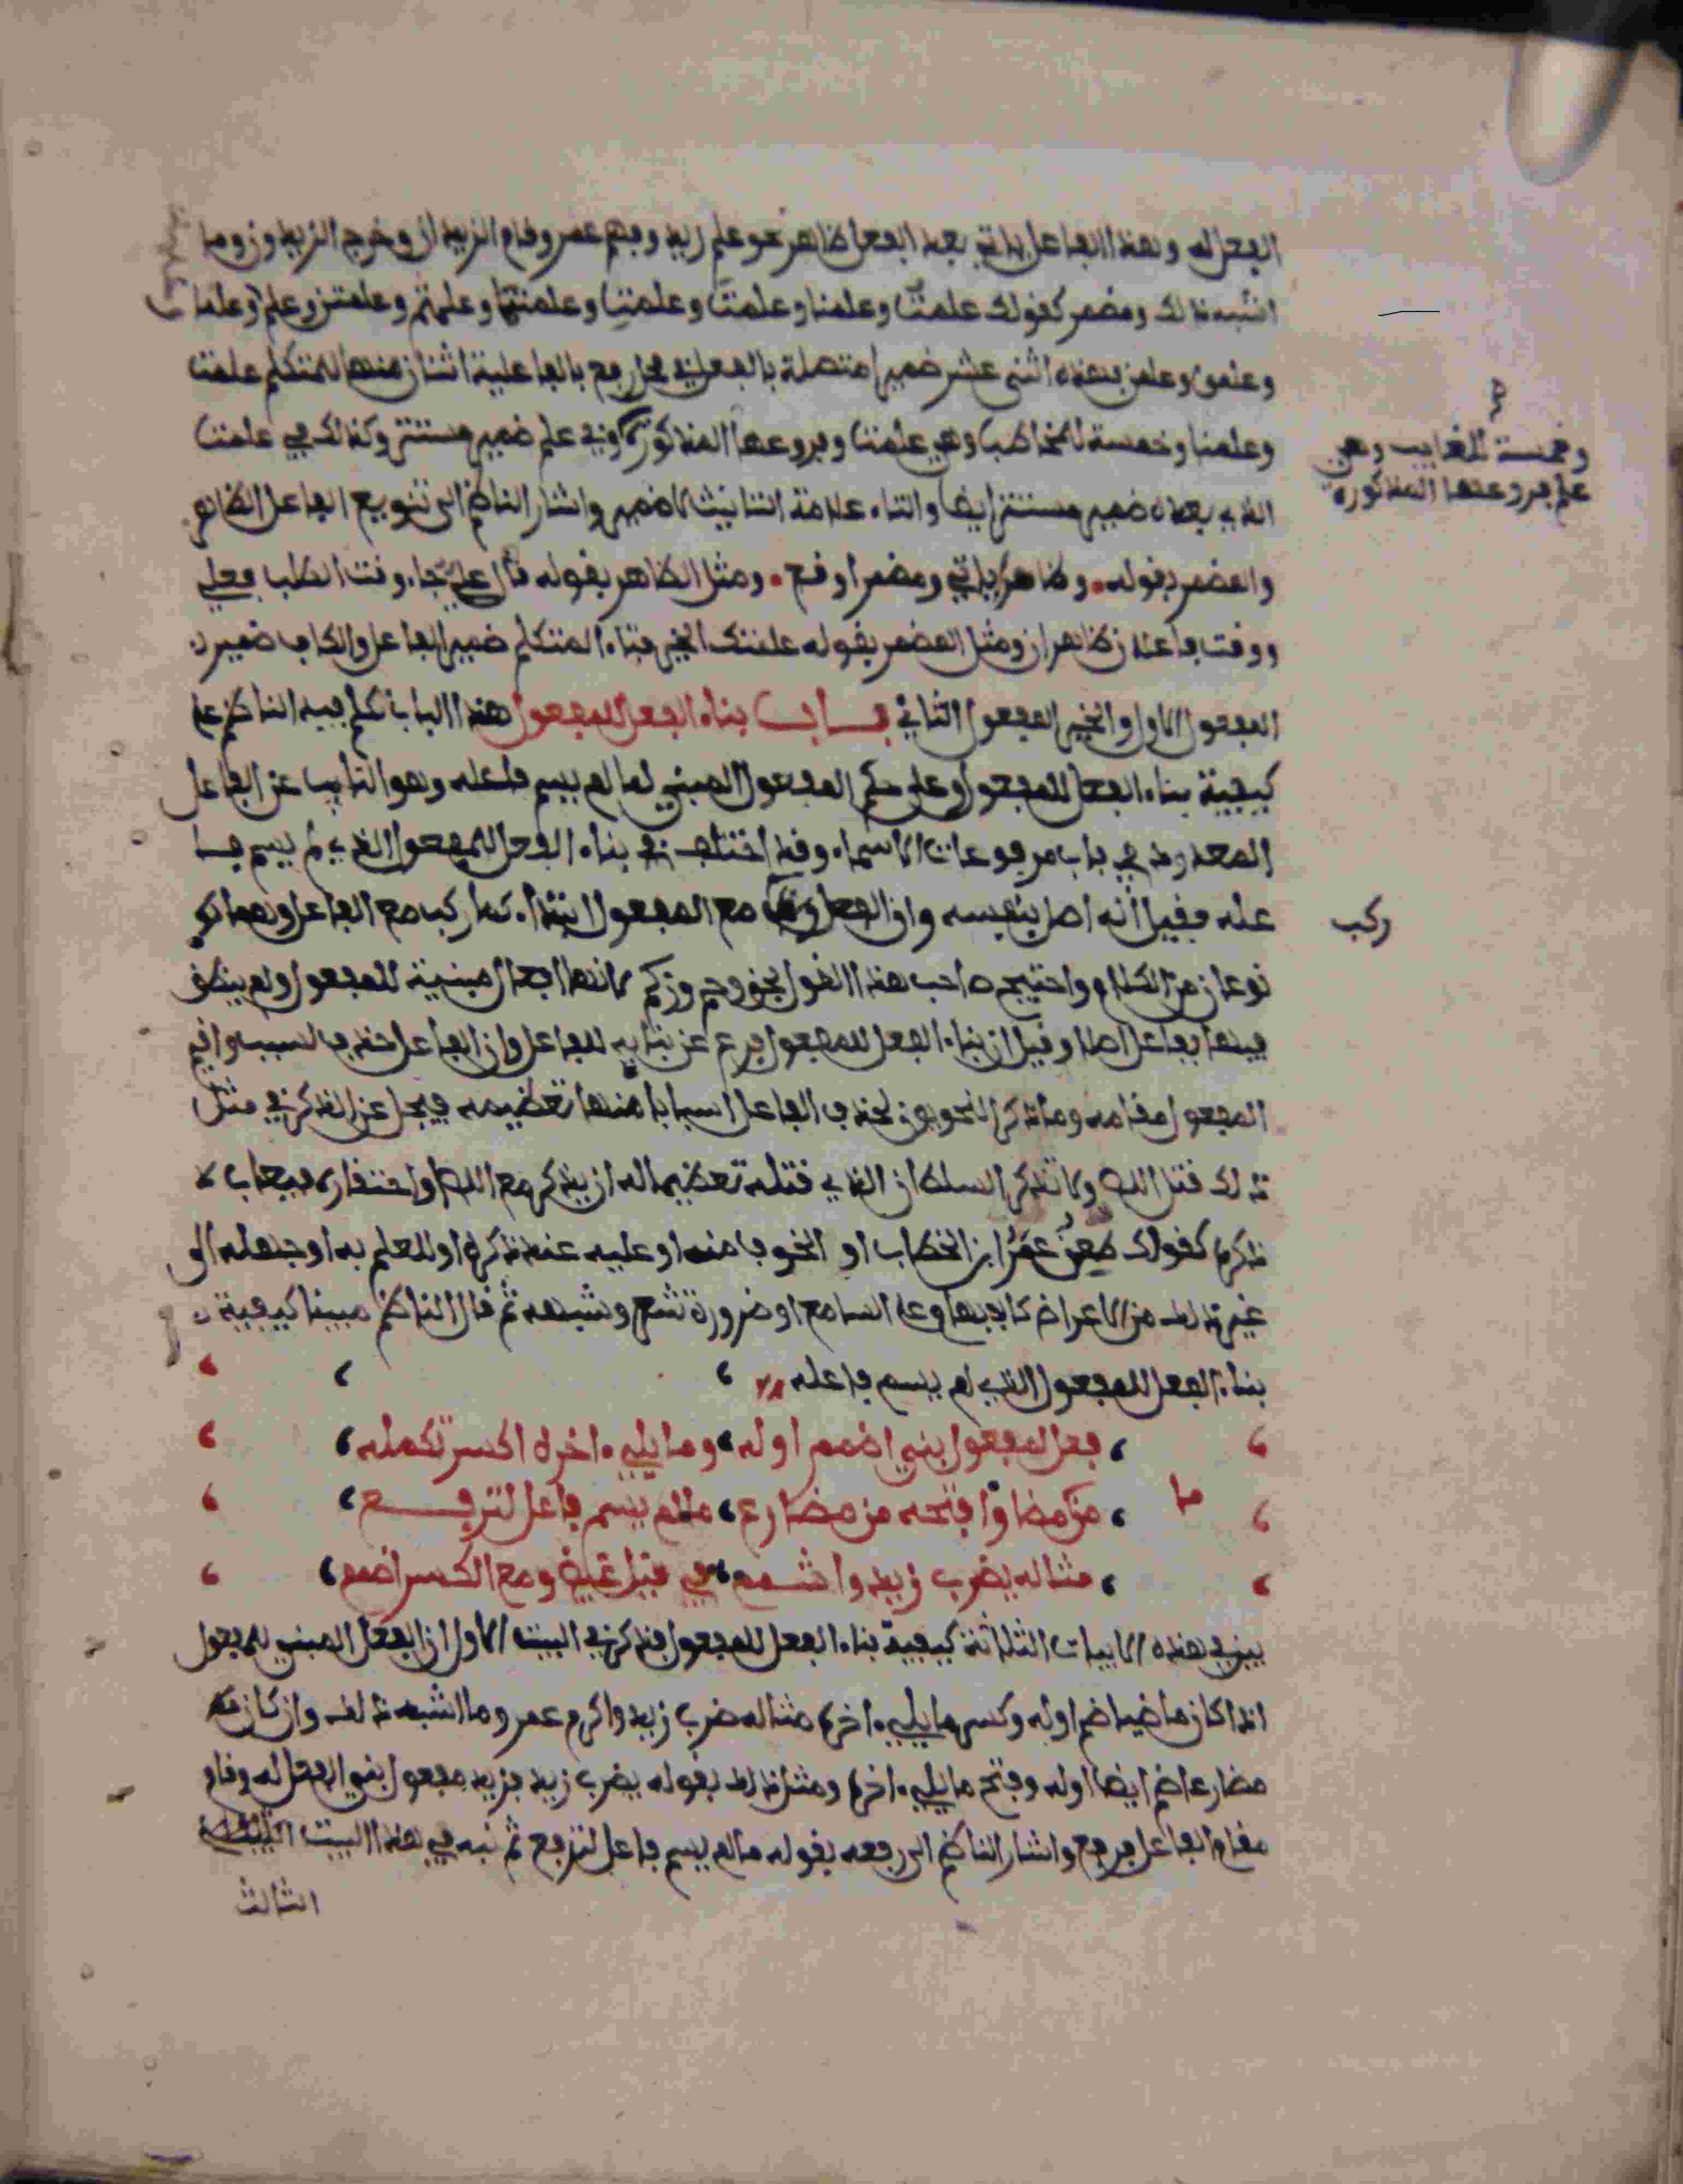 الفعل له وهذا الفاعل ياتي بعد الفعل ظاهر نحو علم زيد وفهم عمرو وقام الزيدان وخرج الزيدون وما
اشبه ذالك ومضمر كقولك علمت وعلمنا وعلمت وعلمت وعلمتما وعلمتم وعلمتن وعلم وعلما
وعلموا وعلمن فهذه اثنى عشر ضميرا متصلة بالفعل في محل رفع بالفاعلية اثنان منها للمتكلم علمت
وعلمنا وخمسة للمخاطب وهي علمت وفروعها المذكورة وفي علم ضمير مستتر وكذالك في علمت
وخمسة للغايب وهي
علم وفروعها المذكورة
الذي بعده ضمير مستتر ايضا والتاء علامة التانيث لا ضمير واشار الناظم الى تنويع الفاعل الظاهر
والمضمر بقوله وظاهرا ياتي ومضمرا وقع ومثل الظاهر بقوله قال علي جاء وقت الطلب فعلي
ووقت فاعلان ظاهران ومثل المضمر بقوله علمتك الخير فتاء المتكلم ضمير الفاعل والكاف ضمير
المفعول الاول والخير المفعول الثاني باب بناء الفعل للمفعول هذا الباب تكلم فيه الناظم على
كيفية بناء الفعل للمفعول وعلى حكم المفعول المبني لما لم يسم فاعله وهو النايب عن الفاعل
المعدود في باب مرفوعات الاسماء وقد اختلف في بناء الفعل للمفعول الذي لم يسم فا
عله فقيل انه اصل بنفسه وان الفعل مع المفعول ابتداء كما ركب مع الفاعل وهما
ركب
نوعان من الكلام واحتج صاحب هذا القول بنحو وزكم لانها افعال مبنية للمفعول ولم ينطق
فيها بفاعل اصلا وقيل ان بناء الفعل للمفعول فرع عن بنايه للفاعل وان الفاعل حذف لسبب واقيم
المفعول مقامه وما ذكر النحويون لحذف الفاعل اسبابا منها تعظيمه فيجل عن الذكر في مثل
ذلك قتل اللص ولا تذكر السلطان الذي قتله تعظيما له ان يذكر مع اللص او احتقاره فيعاب لا
ذكره كقولك طعن عمر ابن الخطاب او الخوف منه او عليه عند ذكره او للعلم به او جهله الى
غير ذلك من الاغراض كالابهام على السامع او ضرورة شعر وشبهه ثم قال الناظم مبينا كيفية
بناء الفعل للمفعول الذي لم يسم فاعله
فعل لمفعول بني اضمم اوله وما يلي ءاخره اكسر تكمله
من مضا وافتحه من مضارع ما لم يسم فاعل لترفع
ما
مثاله يضرب زيد واشمم في قيل غيض ومع الكسر اضمم
بين في هذه الابيات الثلاثة كيفية بناء الفعل للمفعول فذكر في البيت الاول ان الفعل المبني للمفعول
اذا كان ماضيا ضم اوله وكسر ما يلي ءاخره مثاله ضرب زيد واكرم عمرو وما اشبه ذلك وان كان
مضارعا ضم ايضا اوله وفتح ما يلي ءاخره ومثل ذلك بقوله يضرب زيد فزيد مفعول بني الفعل له وقام
مقام الفاعل فرفع واشار الناظم الى رفعه بقوله ما لم يسم فاعل لترفع ثم نبه في هذا البيت
الثالث